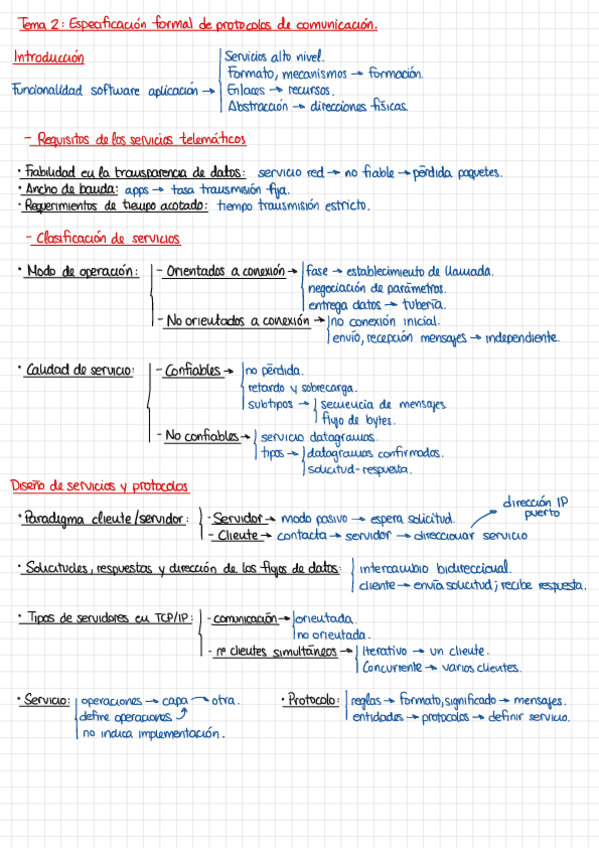 Tema 2: Especificación formal de protocolos de comunicación.
Introducción
Servicios alto nivel.
Formato, mecanismos → formación.
Funcionalidad software aplicación →
Enlaces → recursos.
Abstracción → direcciones físicas.
- Requisitos de los servicios telemáticos
· Fiabilidad en la transparencia de datos: servicio red → no fiable → pérdida paquetes.
· Ancho de banda: apps → tasa transmisión fija.
· Requerimientos de tiempo acotado: tiempo transmisión estricto.
- Clasificación de servicios
· Modo de operación: - Orientados a conexión → fase → establecimiento de llamada.
negociación de parámetros.
entrega datos → tubería.
- No orientados a conexión → no conexión inicial.
envío, recepción mensajes → independiente.
· Calidad de servicio: - Confiables → no pérdida.
retardo y sobrecarga.
subtipos → secuencia de mensajes
flujo de bytes.
- No confiables → servicio datagramas.
tipos → datagramas confirmados.
solicitud-respuesta.
Diseño de servicios y protocolos
dirección IP
puerto
· Paradigma cliente/servidor: - Servidor → modo pasivo → espera solicitud.
- Cliente → contacta → servidor → direccionar servicio
· Solicitudes, respuestas y dirección de los flujos de datos: intercambio bidireccional.
cliente → envía solicitud; recibe respuesta.
· Tipos de servidores en TCP/IP: - comunicación → orientada.
no orientada.
- nº clientes simultáneos → Iterativo → un cliente.
Concurrente → varios clientes.
· Servicio: operaciones → capa → otra.
define operaciones
no indica implementación.
· Protocolo: reglas → formato, significado → mensajes.
entidades → protocolos → definir servicio.